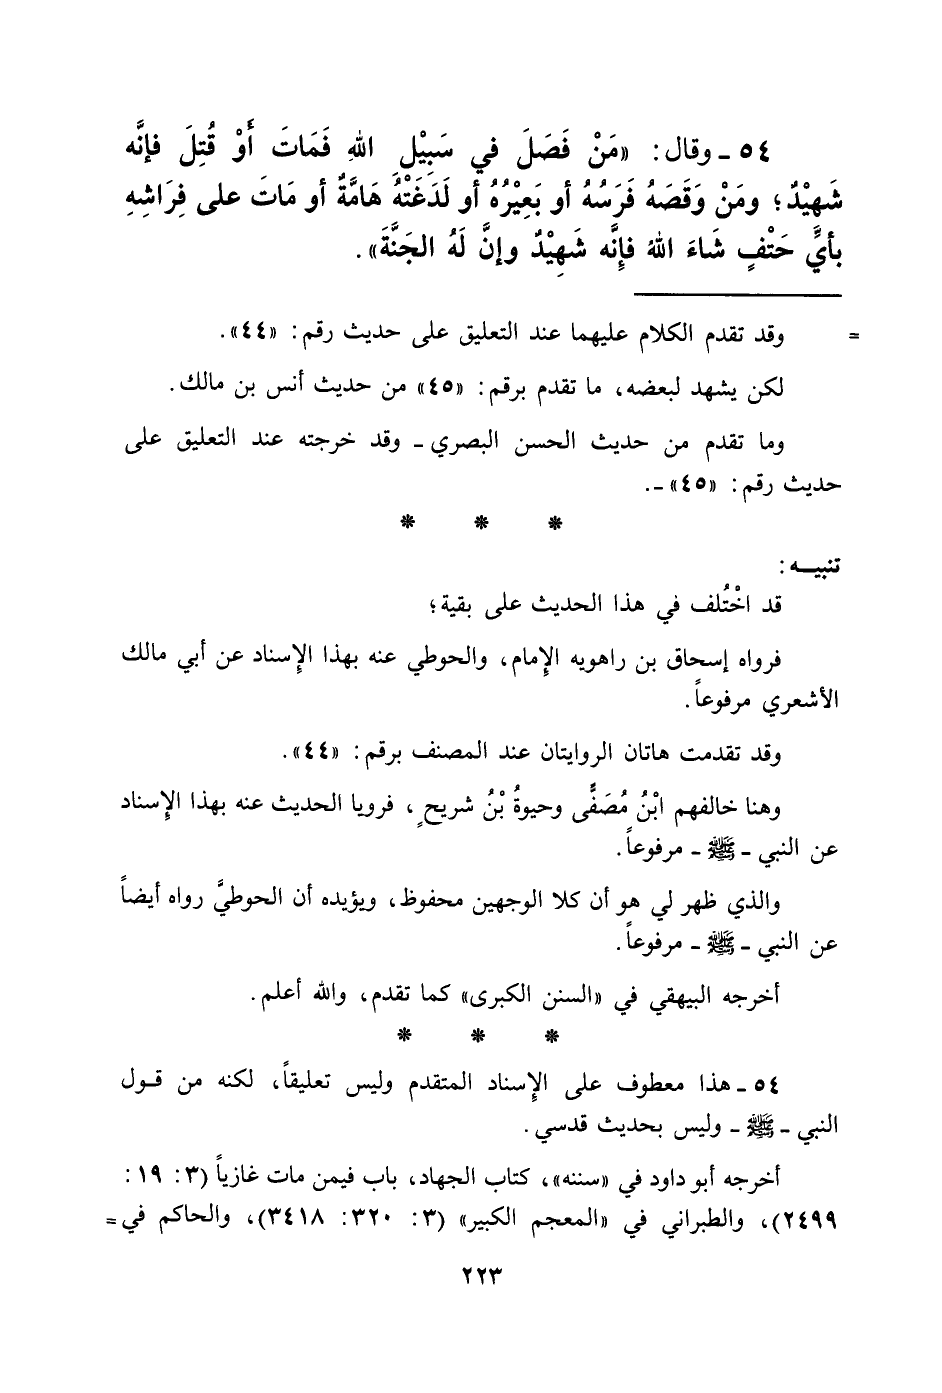 ٥٤ ـ وقال: «مَنْ فَصَلَ في سَبِيْلِ اللهِ فَمَاتَ أَوْ قُتِلَ فإنَّه
شَهِيْدٌ؛ ومَنْ وَقَصَهُ فَرَسُهُ أو بَعِيْرُهُ أو لَدَغَتْهُ هَامَّةٌ أو مَاتَ على فِرَاشِهِ
بأيِّ حَتْفٍ شَاءَ اللهُ فإِنَّه شَهِيْدٌ وإنَّ لَهُ الجَنَّةَ».
= وقد تقدم الكلام عليهما عند التعليق على حديث رقم: «٤٤».
لكن يشهد لبعضه، ما تقدم برقم: «٤٥» من حديث أنس بن مالك.
وما تقدم من حديث الحسن البصري ـ وقد خرجته عند التعليق على
حديث رقم: «٤٥» ـ.
* * *
تنبيـــه:
قد اخْتُلف في هذا الحديث على بقية؛
فرواه إسحاق بن راهويه الإِمام، والحوطي عنه بهذا الإِسناد عن أبي مالك
الأشعري مرفوعاً.
وقد تقدمت هاتان الروايتان عند المصنف برقم: «٤٤».
وهنا خالفهم ابْنُ مُصَفًّى وحيوةُ بْنُ شريحٍ، فرويا الحديث عنه بهذا الإِسناد
عن النبي ـ ﷺ ـ مرفوعاً.
والذي ظهر لي هو أن كلا الوجهين محفوظ، ويؤيده أن الحوطيَّ رواه أيضاً
عن النبي ـ ﷺ ـ مرفوعاً.
أخرجه البيهقي في «السنن الكبرى» كما تقدم، والله أعلم.
* * *
٥٤ ـ هذا معطوف على الإِسناد المتقدم وليس تعليقاً، لكنه من قـول
النبي ـ ﷺ ـ وليس بحديث قدسي.
أخرجه أبو داود في «سننه»، كتاب الجهاد، باب فيمن مات غازياً (٣: ١٩:
٢٤٩٩)، والطبراني في «المعجم الكبير» (٣: ٣٢٠: ٣٤١٨)، والحاكم في =
٢٢٣